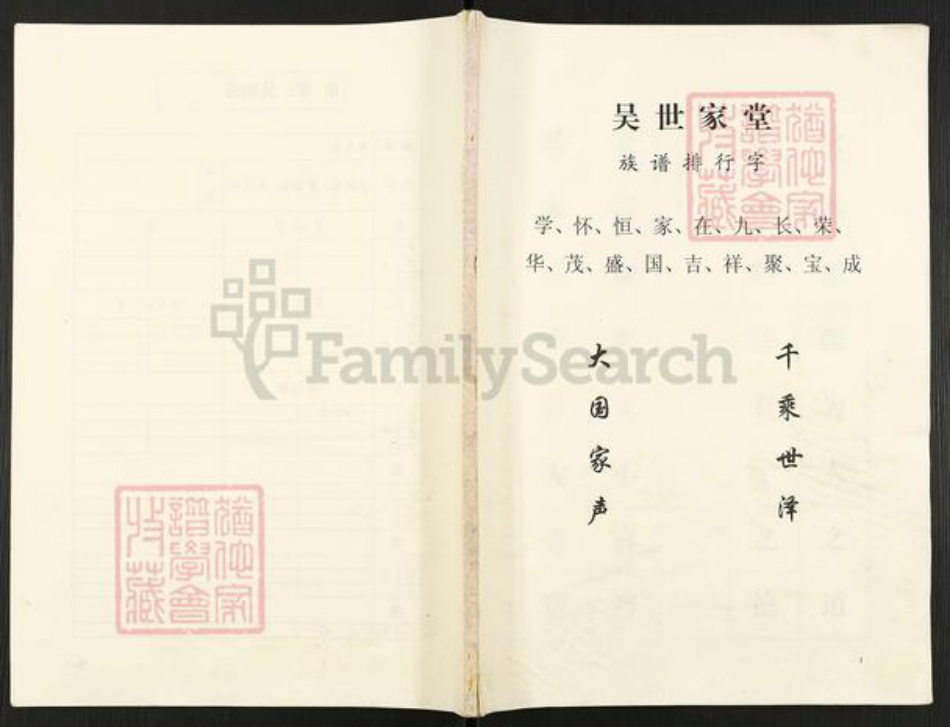 吴世家堂
族谱排行字
学、怀、恒、家、在、九、长、荣、
华、茂、盛、国、吉、祥、聚、宝、成
千乘世泽
大国家声
FamilySearch
猶他家
譜學會
收藏
猶他家
譜學會
收藏
1